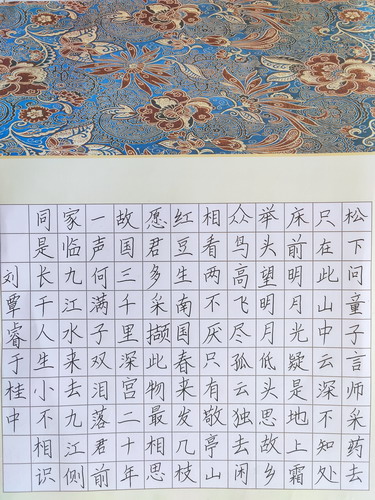 松下问童子言师采药去
只在此山中云深不知处
床前明月光疑是地上霜
举头望明月低头思故乡
众鸟高飞尽孤云独去闲
相看两不厌只有敬亭山
红豆生南国春来发几枝
愿君多采撷此物最相思
故国三千里深宫二十年
一声何满子双泪落君前
家临九江水来去九江侧
同是长干人生小不相识
刘覃睿于桂中